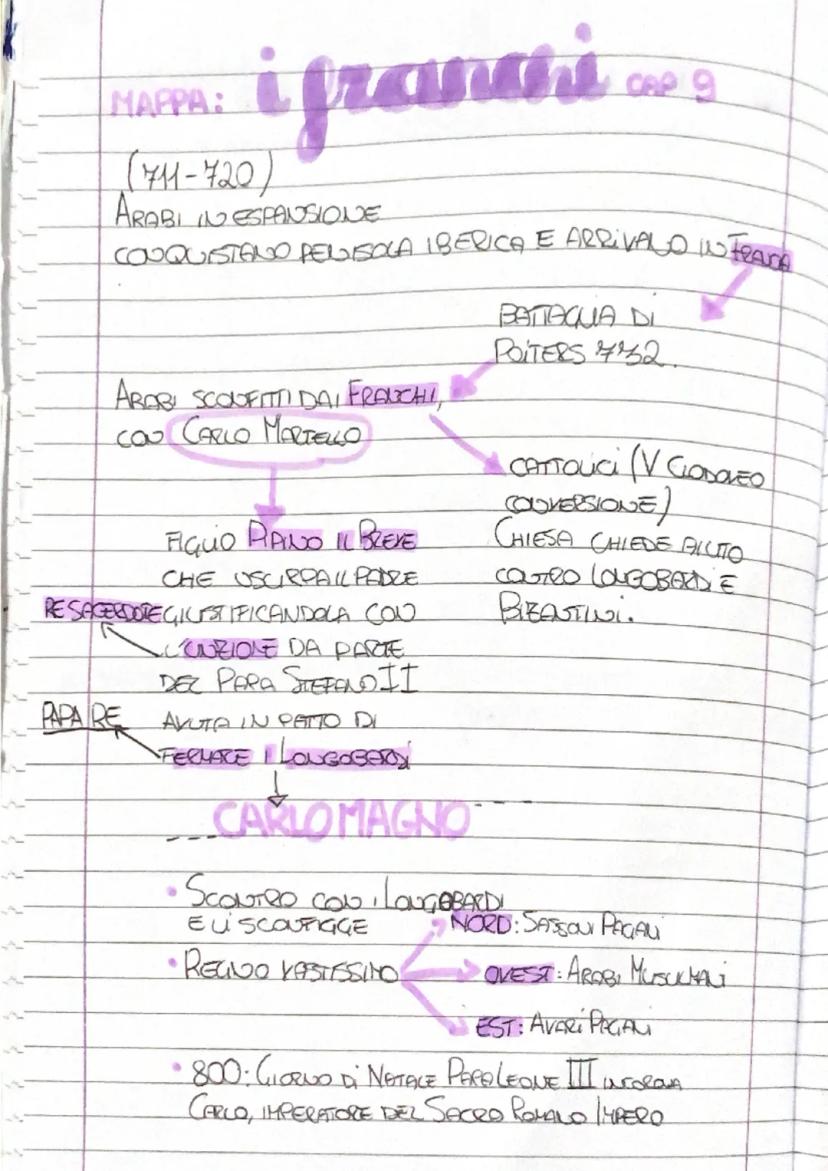 MAPPA: i franchi CAP 9
(711-720)
ARABI IN ESPANSIONE
CONQUISTANO PENISOLA IBERICA E ARRIVANO IN FRANCIA
BATTAGLIA DI
POITERS 732.
ARABI SCONFITTI DAI FRANCHI,
CON CARLO MARTELLO
CATTOLICI (V CLODOVEO
CONVERSIONE)
CHIESA CHIEDE AIUTO
CONTRO LONGOBARDI E
BIZANTINI.
FIGLIO PIPINO IL BREVE
CHE USURPA IL PADRE
RE SACERDOTE GIUSTIFICANDOLA CON
L'UNZIONE DA PARTE
DEL PAPA STEFANO II
PAPA RE AVUTA IN PATTO DI
FERMARE I LONGOBARDI
CARLO MAGNO
• SCONTRO CON I LONGOBARDI
E LI SCONFIGGE
• REGNO VASTISSIMO
NORD: SASSONI PAGANI
OVEST: ARABI MUSULMANI
EST: AVARI PAGANI
• 800: GIORNO DI NATALE PAPA LEONE III INCORONA
CARLO, IMPERATORE DEL SACRO ROMANO IMPERO